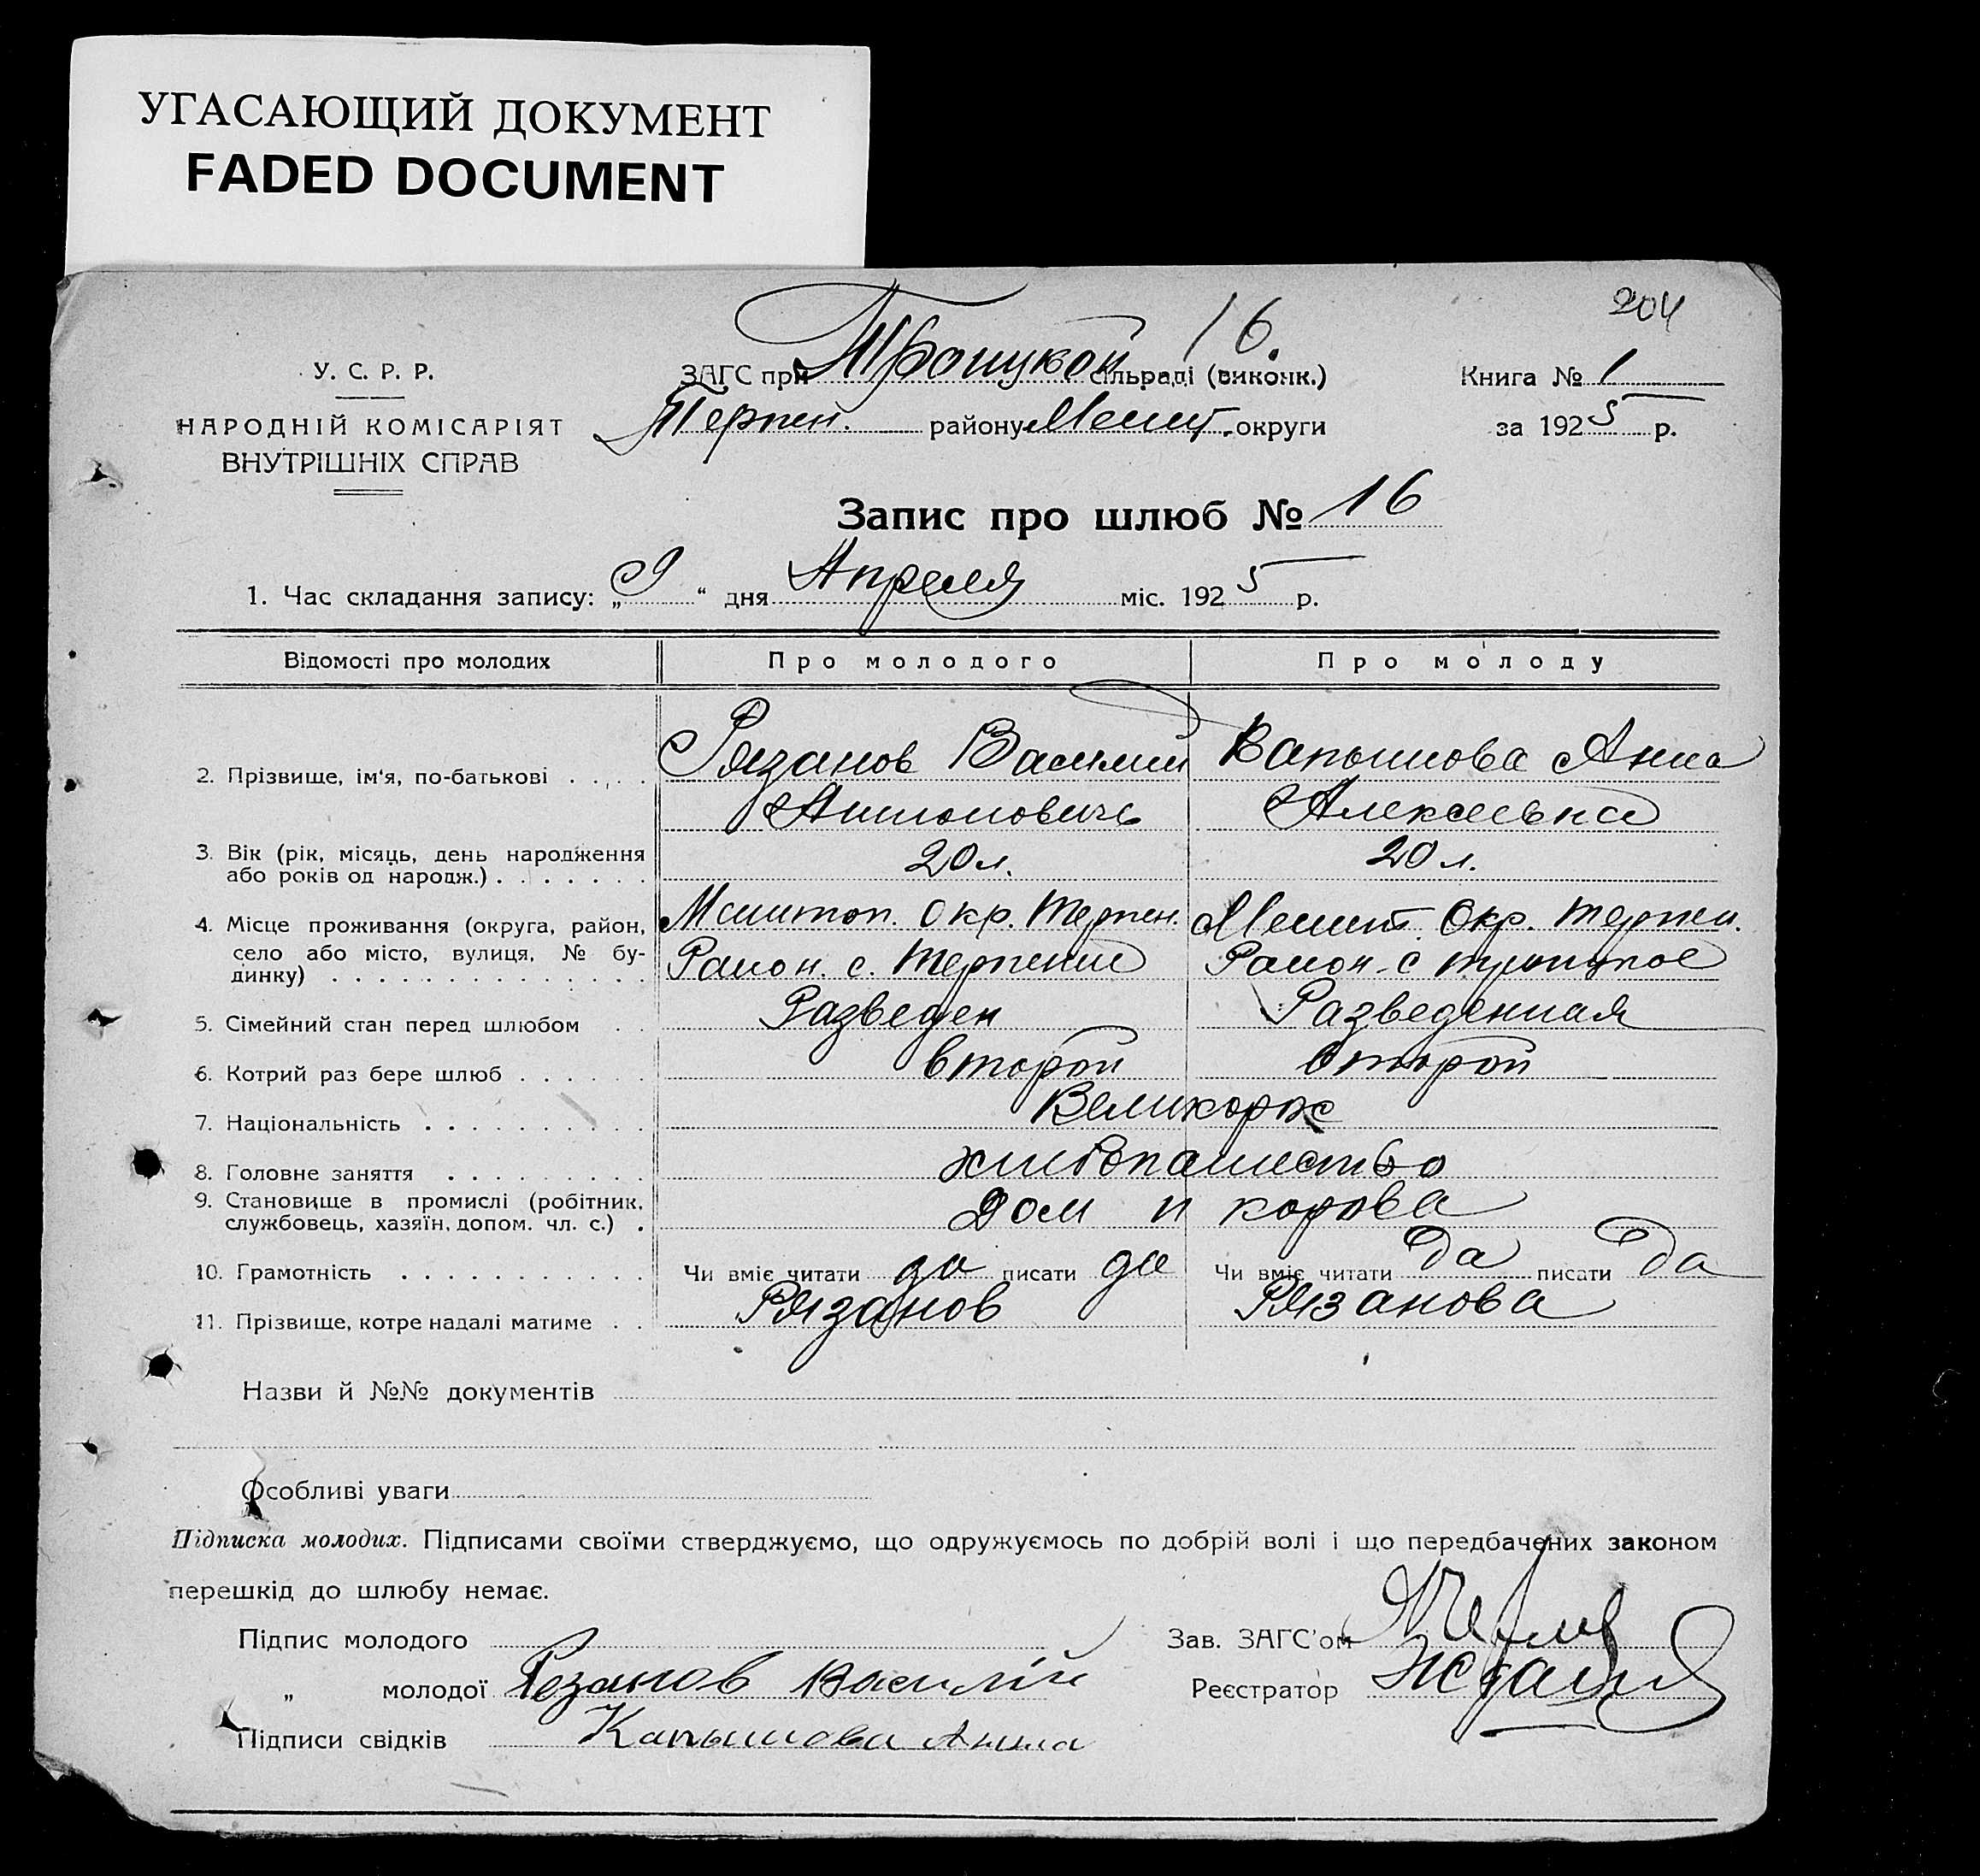 УГАСАЮЩИЙ ДОКУМЕНТ
FADED DOCUMENT
204
16.
У. С. Р. Р.
НАРОДНІЙ КОМІСАРІЯТ
ВНУТРІШНІХ СПРАВ
ЗАГС при Троицкой сільраді (виконк.)
Терпен. району Мелит. округи
Книга № 1
за 1925 р.
Запис про шлюб № 16
1. Час складання запису: „9“ дня Апреля міс. 1925 р.
Відомості про молодих Про молодого Про молоду
2. Прізвище, ім'я, по-батькові . . . . Рязанов Василий Капышова Анна
Антоновичь Алексеевна
3. Вік (рік, місяць, день народження
або років од народж.) . . . . . . . 20 л. 20 л.
4. Місце проживання (округа, район, Мелитоп. Окр. Терпен. Мелит. Окр. Терпен.
село або місто, вулиця, № бу-
динку) . . . . . . . . . . . . . . Район. с. Терпение Район с Троицкое
5. Сімейний стан перед шлюбом . . Разведен Разведенная
6. Котрий раз бере шлюб . . . . . . второй второй
7. Національність . . . . . . . . . . Великорос
8. Головне заняття . . . . . . . . . хлебопашество
9. Становище в промислі (робітник,
службовець, хазяїн, допом. чл. с.) . Дом и корова
10. Грамотність . . . . . . . . . . . Чи вміє читати да писати да Чи вміє читати да писати да
11. Прізвище, котре надалі матиме . . Рязанов Рязанова
Назви й №№ документів
Особливі уваги
Підписка молодих. Підписами своїми стверджуємо, що одружуємось по добрій волі і що передбачених законом
перешкід до шлюбу немає.
Підпис молодого
Зав. ЗАГС'ом
„ молодої Резанов Василій
Реєстратор
Підписи свідків Капышова Анна